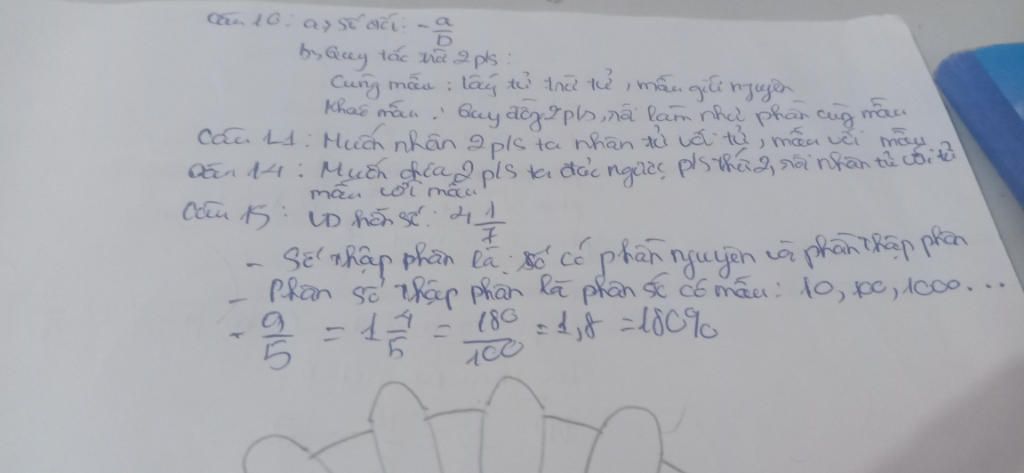 Câu 10: a, số đối: -a/b
b, Quy tắc trừ 2 pls:
Cùng mẫu: lấy tử trừ tử, mẫu giữ nguyên
Khác mẫu: Quy đồng 2 pls, rồi làm như phần cùg mẫu
Câu 11: Muốn nhân 2 pls ta nhân tử với tử, mẫu với mẫu
Câu 14: Muốn chia 2 pls ta đảo ngược pls thứ 2, rồi nhân tử với tử
mẫu với mẫu
Câu 15: VD hỗn số: 4 1/7
- Số thập phân là: số có phần nguyên và phần thập phân
- Phân số thập phân là phân số có mẫu: 10, 100, 1000...
- 9/5 = 1 4/5 = 180/100 = 1,8 = 180%